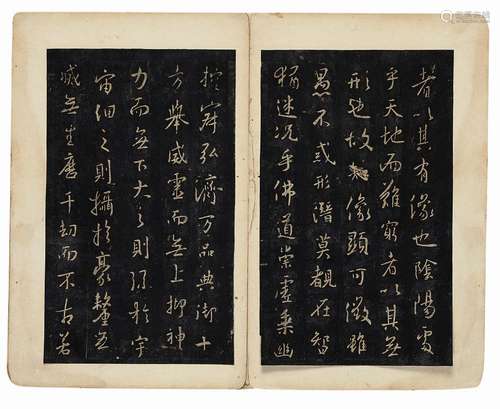 者以其有像也陰陽處
乎天地而難窮者以其無
形也故知像顯可徵雖
愚不惑形潛莫覩在智
猶迷况乎佛道崇虛乘幽
控寂弘濟万品典御十
方舉威靈而無上抑神
力而無下大之則弥於宇
宙細之則攝於豪釐無
滅無生歷千劫而不古若